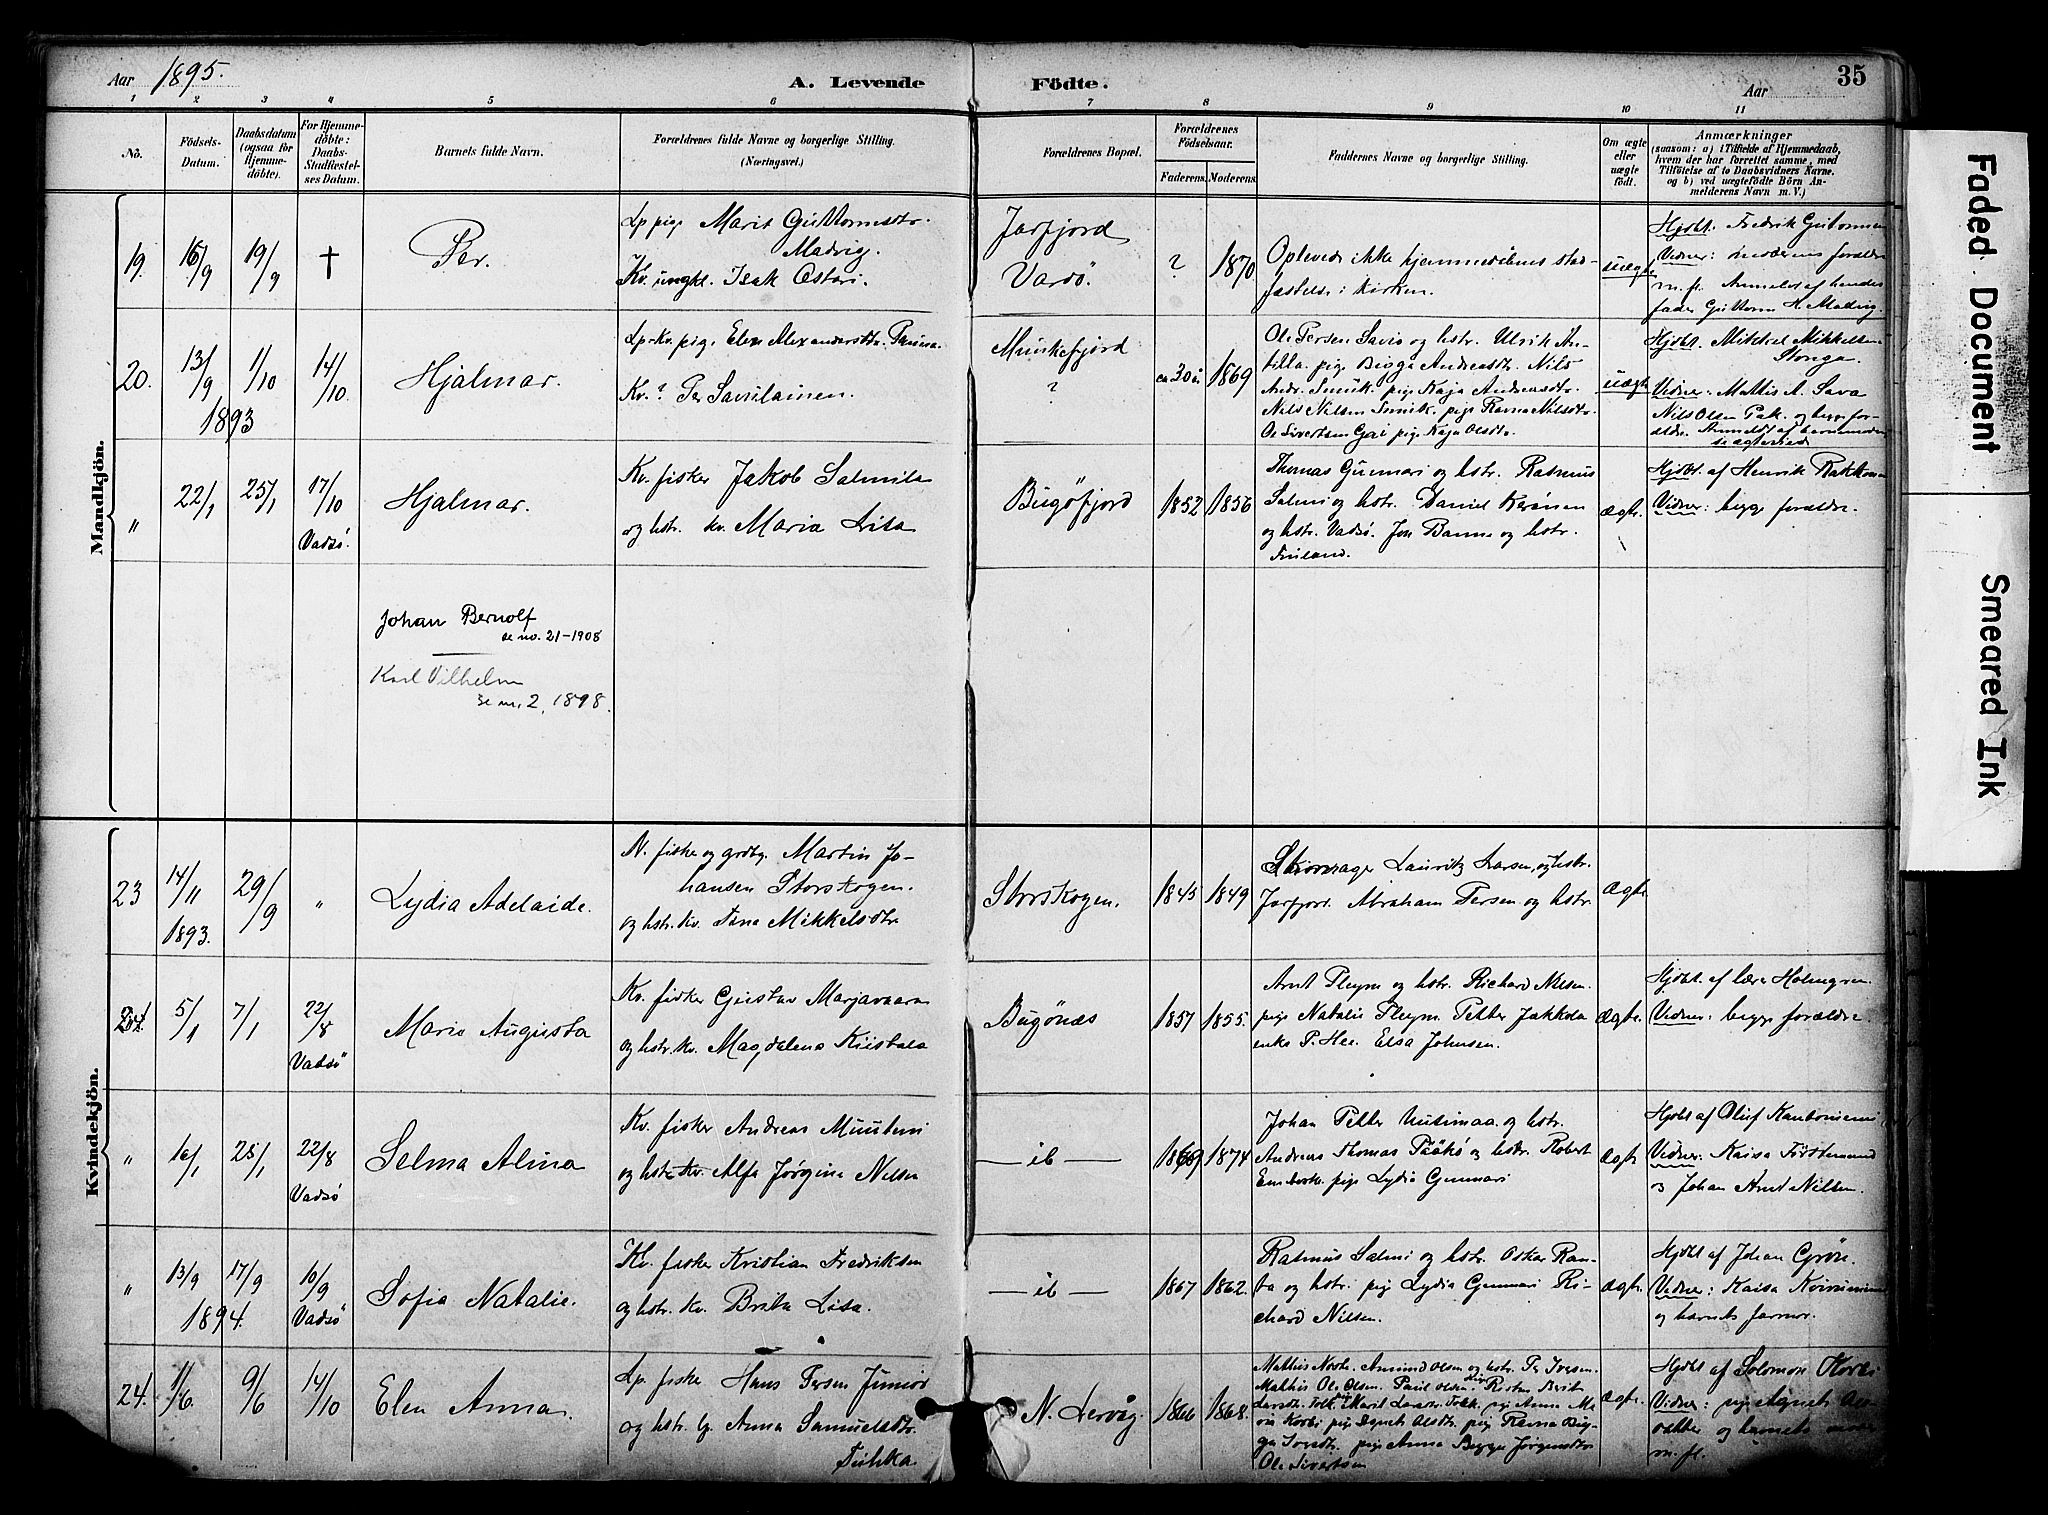 Aar 1895.
A. Levende
Födte.
Aar
35
1 2 3 4 5 6 7 8 9 10 11
No.
Födsels-
Datum.
Daabsdatum
(ogsaa for
Hjemme-
döbte).
For Hjemme-
döbte:
Daabs-
Stadfæstel-
ses Datum.
Barnets fulde Navn.
Forældrenes fulde Navne og borgerlige Stilling.
(Næringsvei.)
Forældrenes Bopæl.
Forældrenes
Födselsaar.
Faderens.
Moderens.
Faddernes Navne og borgerlige Stilling.
Om ægte
eller
uægte
födt.
Anmærkninger
(saasom: a) i Tilfælde af Hjemmedaab,
hvem der har forrettet samme, med
Tilföielse af to Daabsvidners Navne,
og b) ved uægtefödte Börn An-
melderens Navn m. V.)
Mandkjön.
19. 16/9 19/9 †
Per.
Lp pige Marit Guttormsdtr.
Madvig.
Kv. ungkl. Isak Ostari.
Jarfjord
Vardö.
? 1870
Oplevede ikke hjemmedåbens stad-
fæstelse i kirken.
uægte
Hjdbt. Fredrik Guttormsen
Vidner: moderens forældre
m. fl. Anmeldt af hendes
fader Guttorm H. Madvig.
20. 13/9 1/10 14/10
1893
Hjalmar.
Lp-Kv. pige Elen Alexandersdtr.
Kv. ? Per Savilainen.
Munkefjord
?
ca 30 år 1869
Ole Persen Savio og hstr. Ulrik An-
tilla. pige Birga Andreasdtr. Nils
Andr. pige Kaja Andreasdtr.
Nils Nilsen pige Ravna Nilsdtr.
Ole Sivertsen pige Kaja Olsdtr.
uægte
Hjdbt. Mikkel Mikkelsen
Vidner: Mathis A. Sava
Nils Olsen og begge for-
ældre. Anmeldt af barnemoderen
" 22/1 25/1 17/10
Vadsö.
Hjalmar.
Kv. fisker Jakob Salmila
og hstr. kv. Maria Lisa
Bugöfjord
1852 1856
Thomas Gunnari og hstr. Rasmus
Salmi og hstr. Daniel Keränen
og hstr. Vadsö. Jon Banne og hstr.
Finland.
ægte.
Hjdbt. af Henrik
Vidner: begge forældre.
Johan Bernolf
se no. 21-1908
Karl Vilhelm
se nr. 2, 1898.
Kvindekjön.
23 14/11 29/9 "
1893.
Lydia Adelaide.
N. fisker og grdbr. Martin Jo-
hansen Storskogen.
og hstr. kv. Jana Mikkelsdtr
Storskogen.
1845 1849
Lauritz Larsen, og hstr.
Jarfjord. Abraham Persen og hstr.
ægte
5/1 7/1 22/8
Vadsö
Marie Augusta
Kv. fisker Gustav Marjavaara
og hstr. kv. Magdalena Kiistala
Bugönæs
1857 1855.
Arnt Pleym og hstr. Richard Nilsen.
pige Natalie Pleym. Petter Jakkola
enke P. Hee. Elsa Johnsen.
ægte.
Hjdbt. af lærer Holmgren
Vidner: begge forældre.
" 16/1 25/1 22/8
Vadsö
Selma Alina
Kv. fisker Andreas
og hstr. kv. Alfa Jörgine Nilsen
— ib —
1869 1874
Johan Petter Uusimaa og hstr.
Andreas Thomas og hstr. Robert
pige Lydia Gunnari
ægte
Hjdbt af Oluf
Vidner: Kaisa
og Johan Arnt Nilsen.
" 13/9 17/9 10/9
1894. Vadsö
Sofie Natalie.
Kv. fisker Kristian Fredriksen
og hstr. kv. Brita Lisa.
— ib —
1867 1862.
Rasmus Salmi og hstr. Oskar Ran-
ta og hstr. pige Lydia Gunnari Ri-
chard Nilsen.
ægte.
Hjdbt af Johan Grön.
Vidner: Kaisa
og barnets farmor.
24. 1/6. 9/6 14/10
Elen Anna.
Lp. fisker Hans Persen Junior
og hstr. lp. Anna Samuelsdtr.
N. Lervåg.
1866 1868.
Amund Olsen og hstr. Per Iversen.
Mathis Ole Olsen. Paul Olsen. Ristin Brita
Marit Larsdtr. pige Anna Ma-
ria Korbi pige Agnet Olsdtr. pige Ravna Bir-
ga pige Anna Berga Jörgensdtr
Ole Sivertsen
ægte.
Hjdbt af Solomon Korbi
Vidner: pige Agnet
og barnets
m. fl.
Faded Document
Smeared Ink